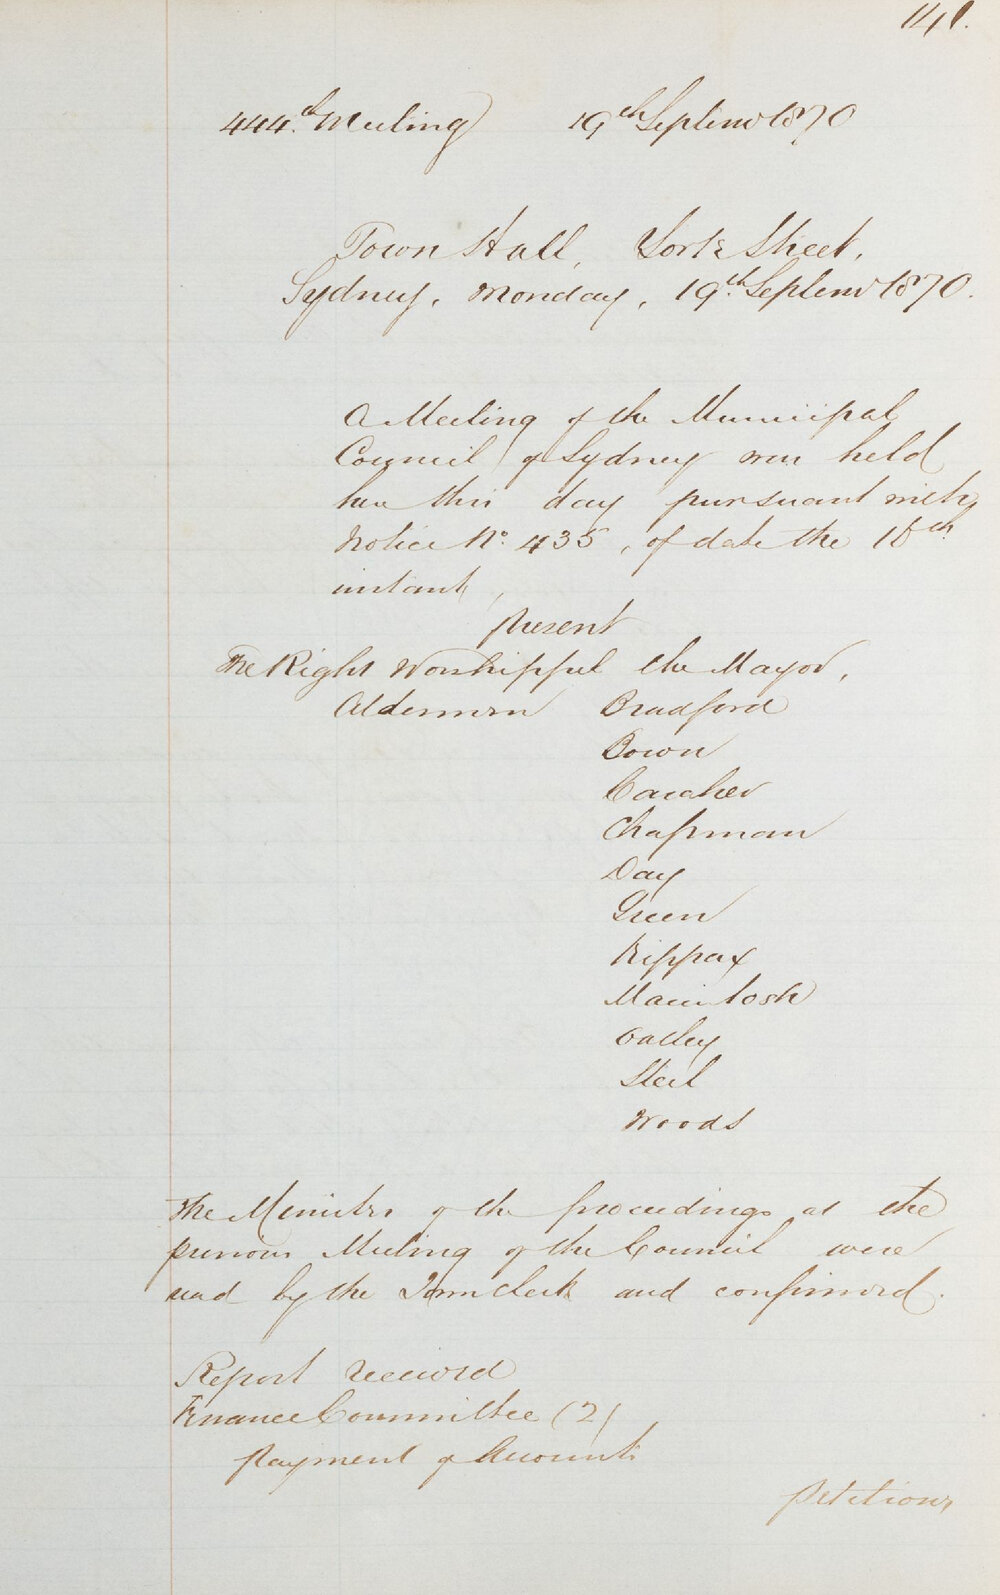 141.
444th Meeting 19th September 1870
Town Hall, York Street,
Sydney, Monday, 19th September 1870.
A Meeting of the Municipal
Council of Sydney was held
here this day pursuant with
Notice No. 435, of date the 16th
instant,
Present
The Right Worshipful the Mayor,
Aldermen Bradford
Bown
Caraher
Chapman
Day
Green
Kippax
Macintosh
Oatley
Steel
Woods
The Minutes of the proceedings at the
previous Meeting of the Council were
read by the Town Clerk and confirmed.
Report received
Finance Committee (2)
Payment of Accounts
Petitions